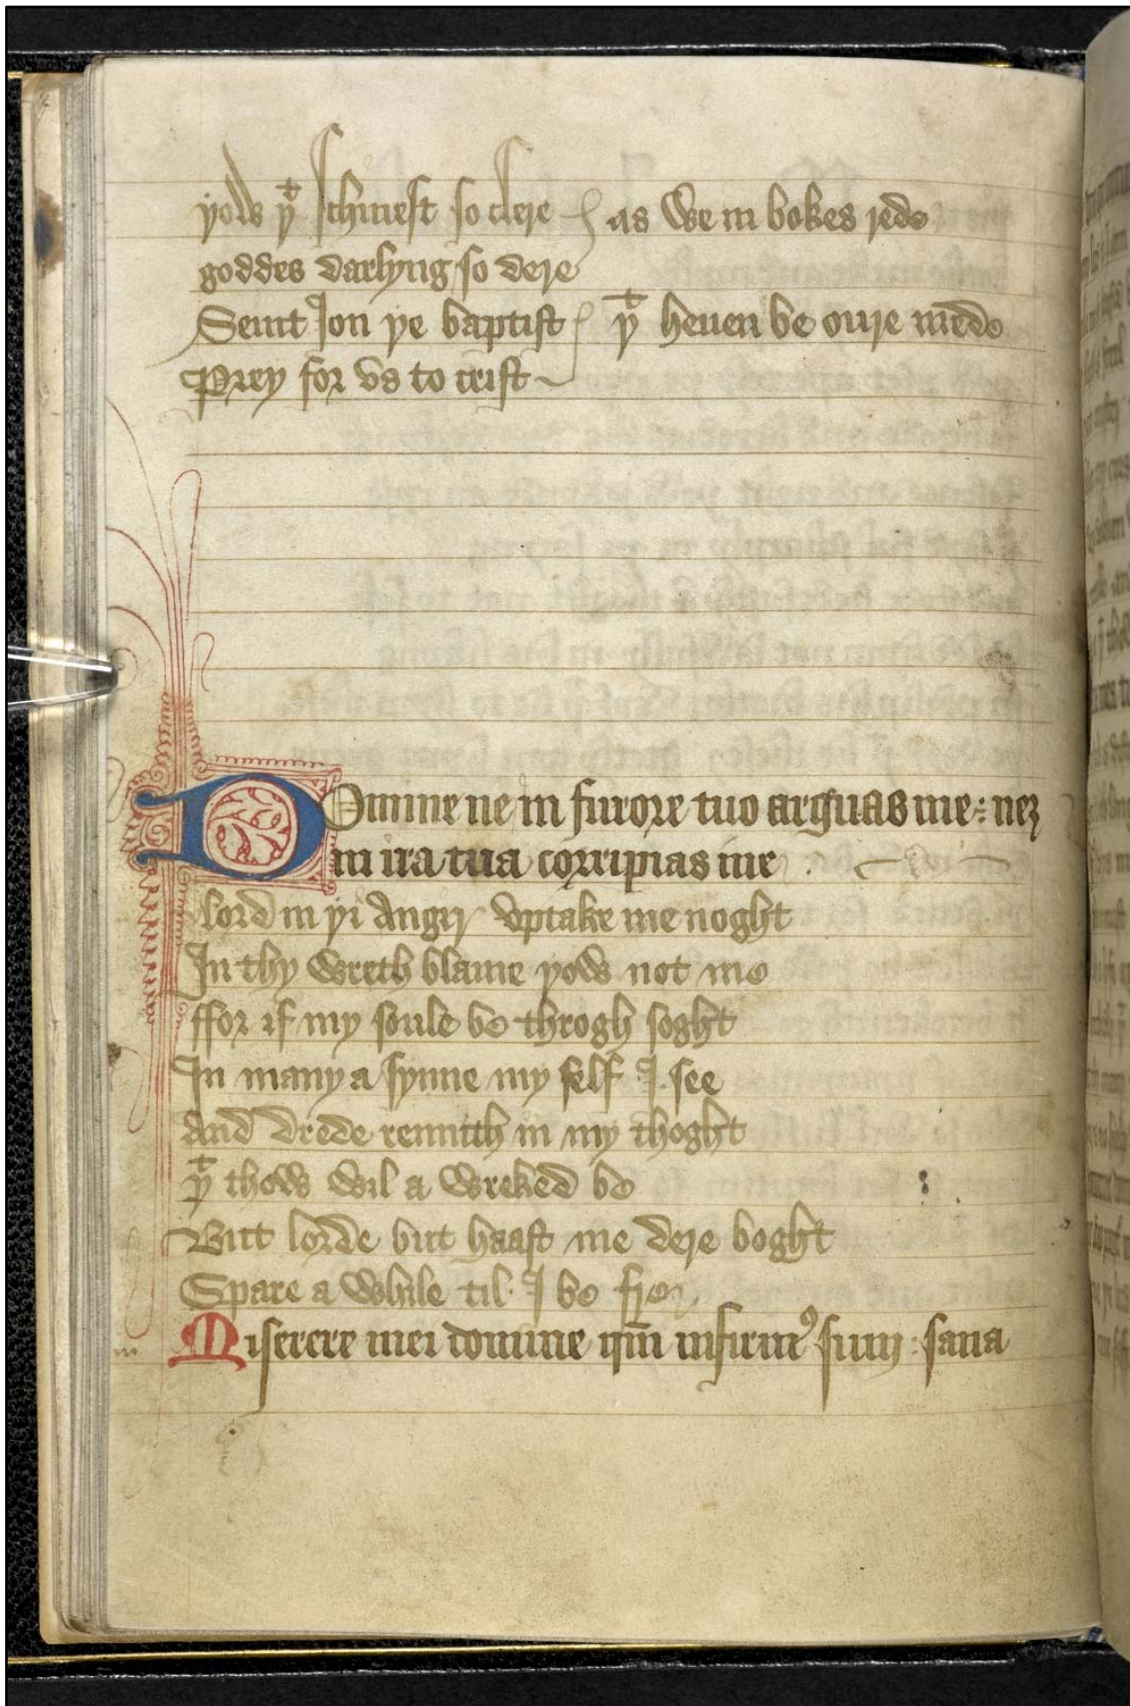 yow yͭ schinest so clere as We in bokes rede
goddes darlyng so dere
Seint Jon ye baptist yͭ heuen be oure mede
Prey for vs to crist
Domine ne in furore tuo arguas me : neqȝ
in ira tua corripias me
lord in yi Angyr vptake me noght
In thy Wreth blame yow not me
ffor if my soule be throgh soght
In many a synne my self I see
And drede rennith in my thoght
yͭ thow wil a Wreked be
But lorde but haast me dere boght
Spare a While til I be fre
Miserere mei domine qm̄ infirmꝰ sum : sana